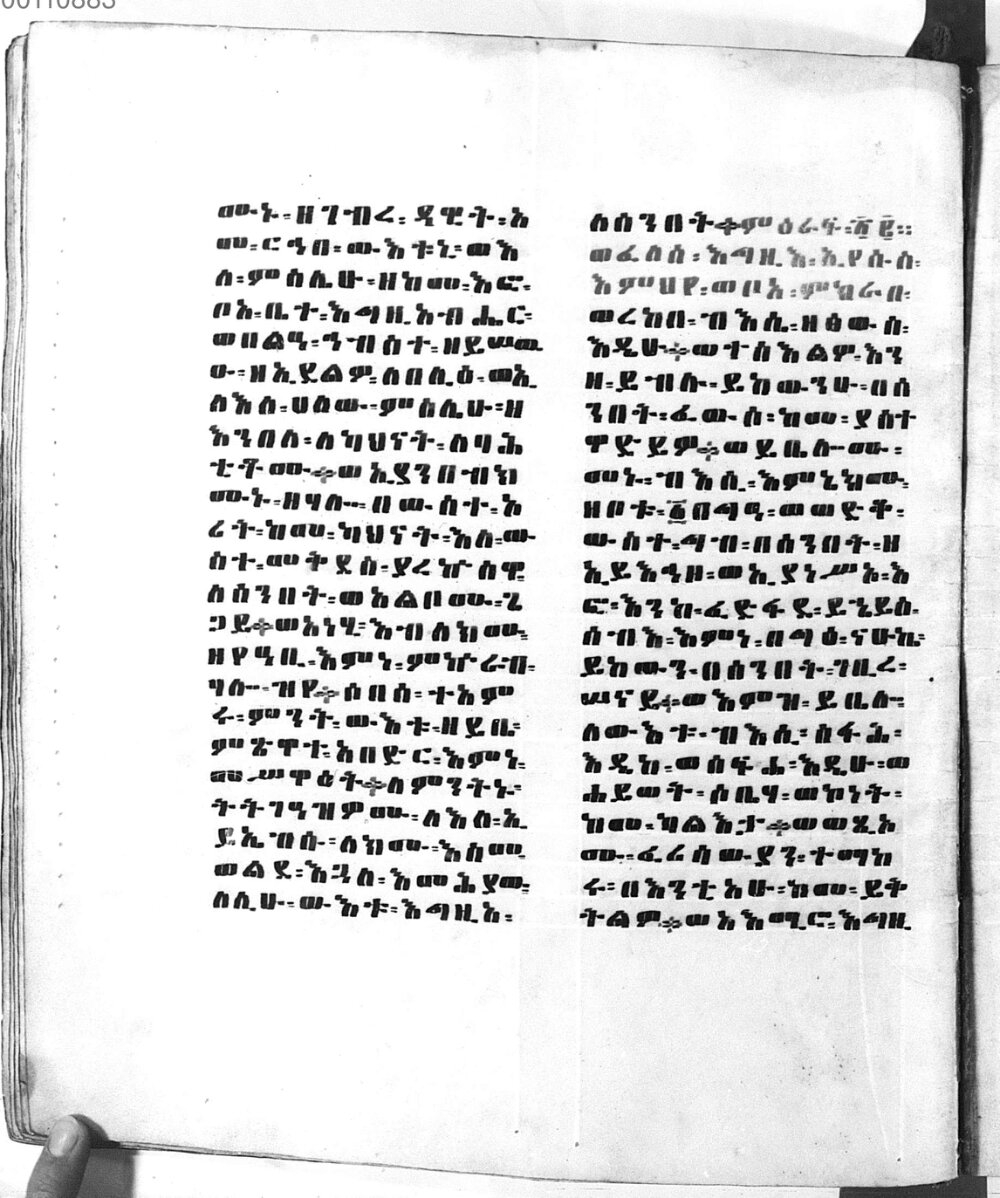 00110883
መኑ፡ዘገብረ፡ዳዊት፡አ
መ፡ርኅበ፡ውእቱኒ፡ወእ
ለ፡ምስሌሁ፡ዘከመ፡እፎ፡
ቦአ፡ቤተ፡እግዚአብሔር፡
ወበልዓ፡ኅብስተ፡ዘይሠወ
ዑ፡ዘኢይደልዎ፡ለበሊዕ፡ወኢ
ለእለ፡ሀለው፡ምስሌሁ፡ዘ
እንበለ፡ለካህናት፡ለባሕ
ቲቶሙ፡ወኢያንበብክ
ሙኑ፡ዘሃሎ፡በውስተ፡ኦ
ሪት፡ከመ፡ካህናት፡እለ፡ው
ስተ፡መቅደስ፡ያረኵስዋ
ለሰንበት፡ወአልቦሙ፡ጌ
ጋይ፡ወአነሂ፡እብለክሙ፡
ዘየዓቢ፡እምነ፡ምኵራብ፡
ሃሎ፡ዝየ፡ሶበሰ፡ተአም
ሩ፡ምንት፡ውእቱ፡ዘይቤ፡
ምጽዋተ፡አበድር፡እምነ፡
መሥዋዕት፡ለምንትኑ፡
ትትገዓዝዎሙ፡ለእለ፡ኢ
ይኤብሱ፡ለክሙ፡እስመ
ወልደ፡እጓለ፡እመሕያው፡
ለሊሁ፡ውእቱ፡እግዚአ፡
ለሰንበት፡ምዕራፍ፡፳፪።
ወፈለሰ፡እግዚእ፡ኢየሱስ፡
እምህየ፡ወቦአ፡ምኵራበ፡
ወረከበ፡ብእሴ፡ዘፅውስ፡
እዴሁ፡ወተስእልዎ፡እን
ዘ፡ይብሉ፡ይከውንሁ፡በሰ
ንበት፡ፈውሶ፡ከመ፡ያስተ
ዋድይዎ፡ወይቤሎሙ፡
መኑ፡ብእሲ፡እምኔክሙ፡
ዘቦቱ፡፩በግዓ፡ወወድቀ፡
ውስተ፡ግብ፡በሰንበት፡ዘ
ኢይእኅዞ፡ወኢያነሥኦ፡እ
ፎ፡እንከ፡ፈድፋደ፡ይኄይስ፡
ሰብእ፡እምነ፡በግዕ፡ናሁኬ፡
ይከውን፡በሰንበት፡ገቢረ፡
ሠናይ፡ወእምዝ፡ይቤሎ፡
ለውእቱ፡ብእሲ፡ስፋሕ፡
እዴከ፡ወሰፍሐ፡እዴሁ፡ወ
ሐይወት፡ሶቤሃ፡ወኮነት፡
ከመ፡ካልእታ፡ወወፂኦ
ሙ፡ፈሪሳውያን፡ተማከ
ሩ፡በእንቲአሁ፡ከመ፡ይቅ
ትልዎ፡ወአእሚሮ፡እግዚ